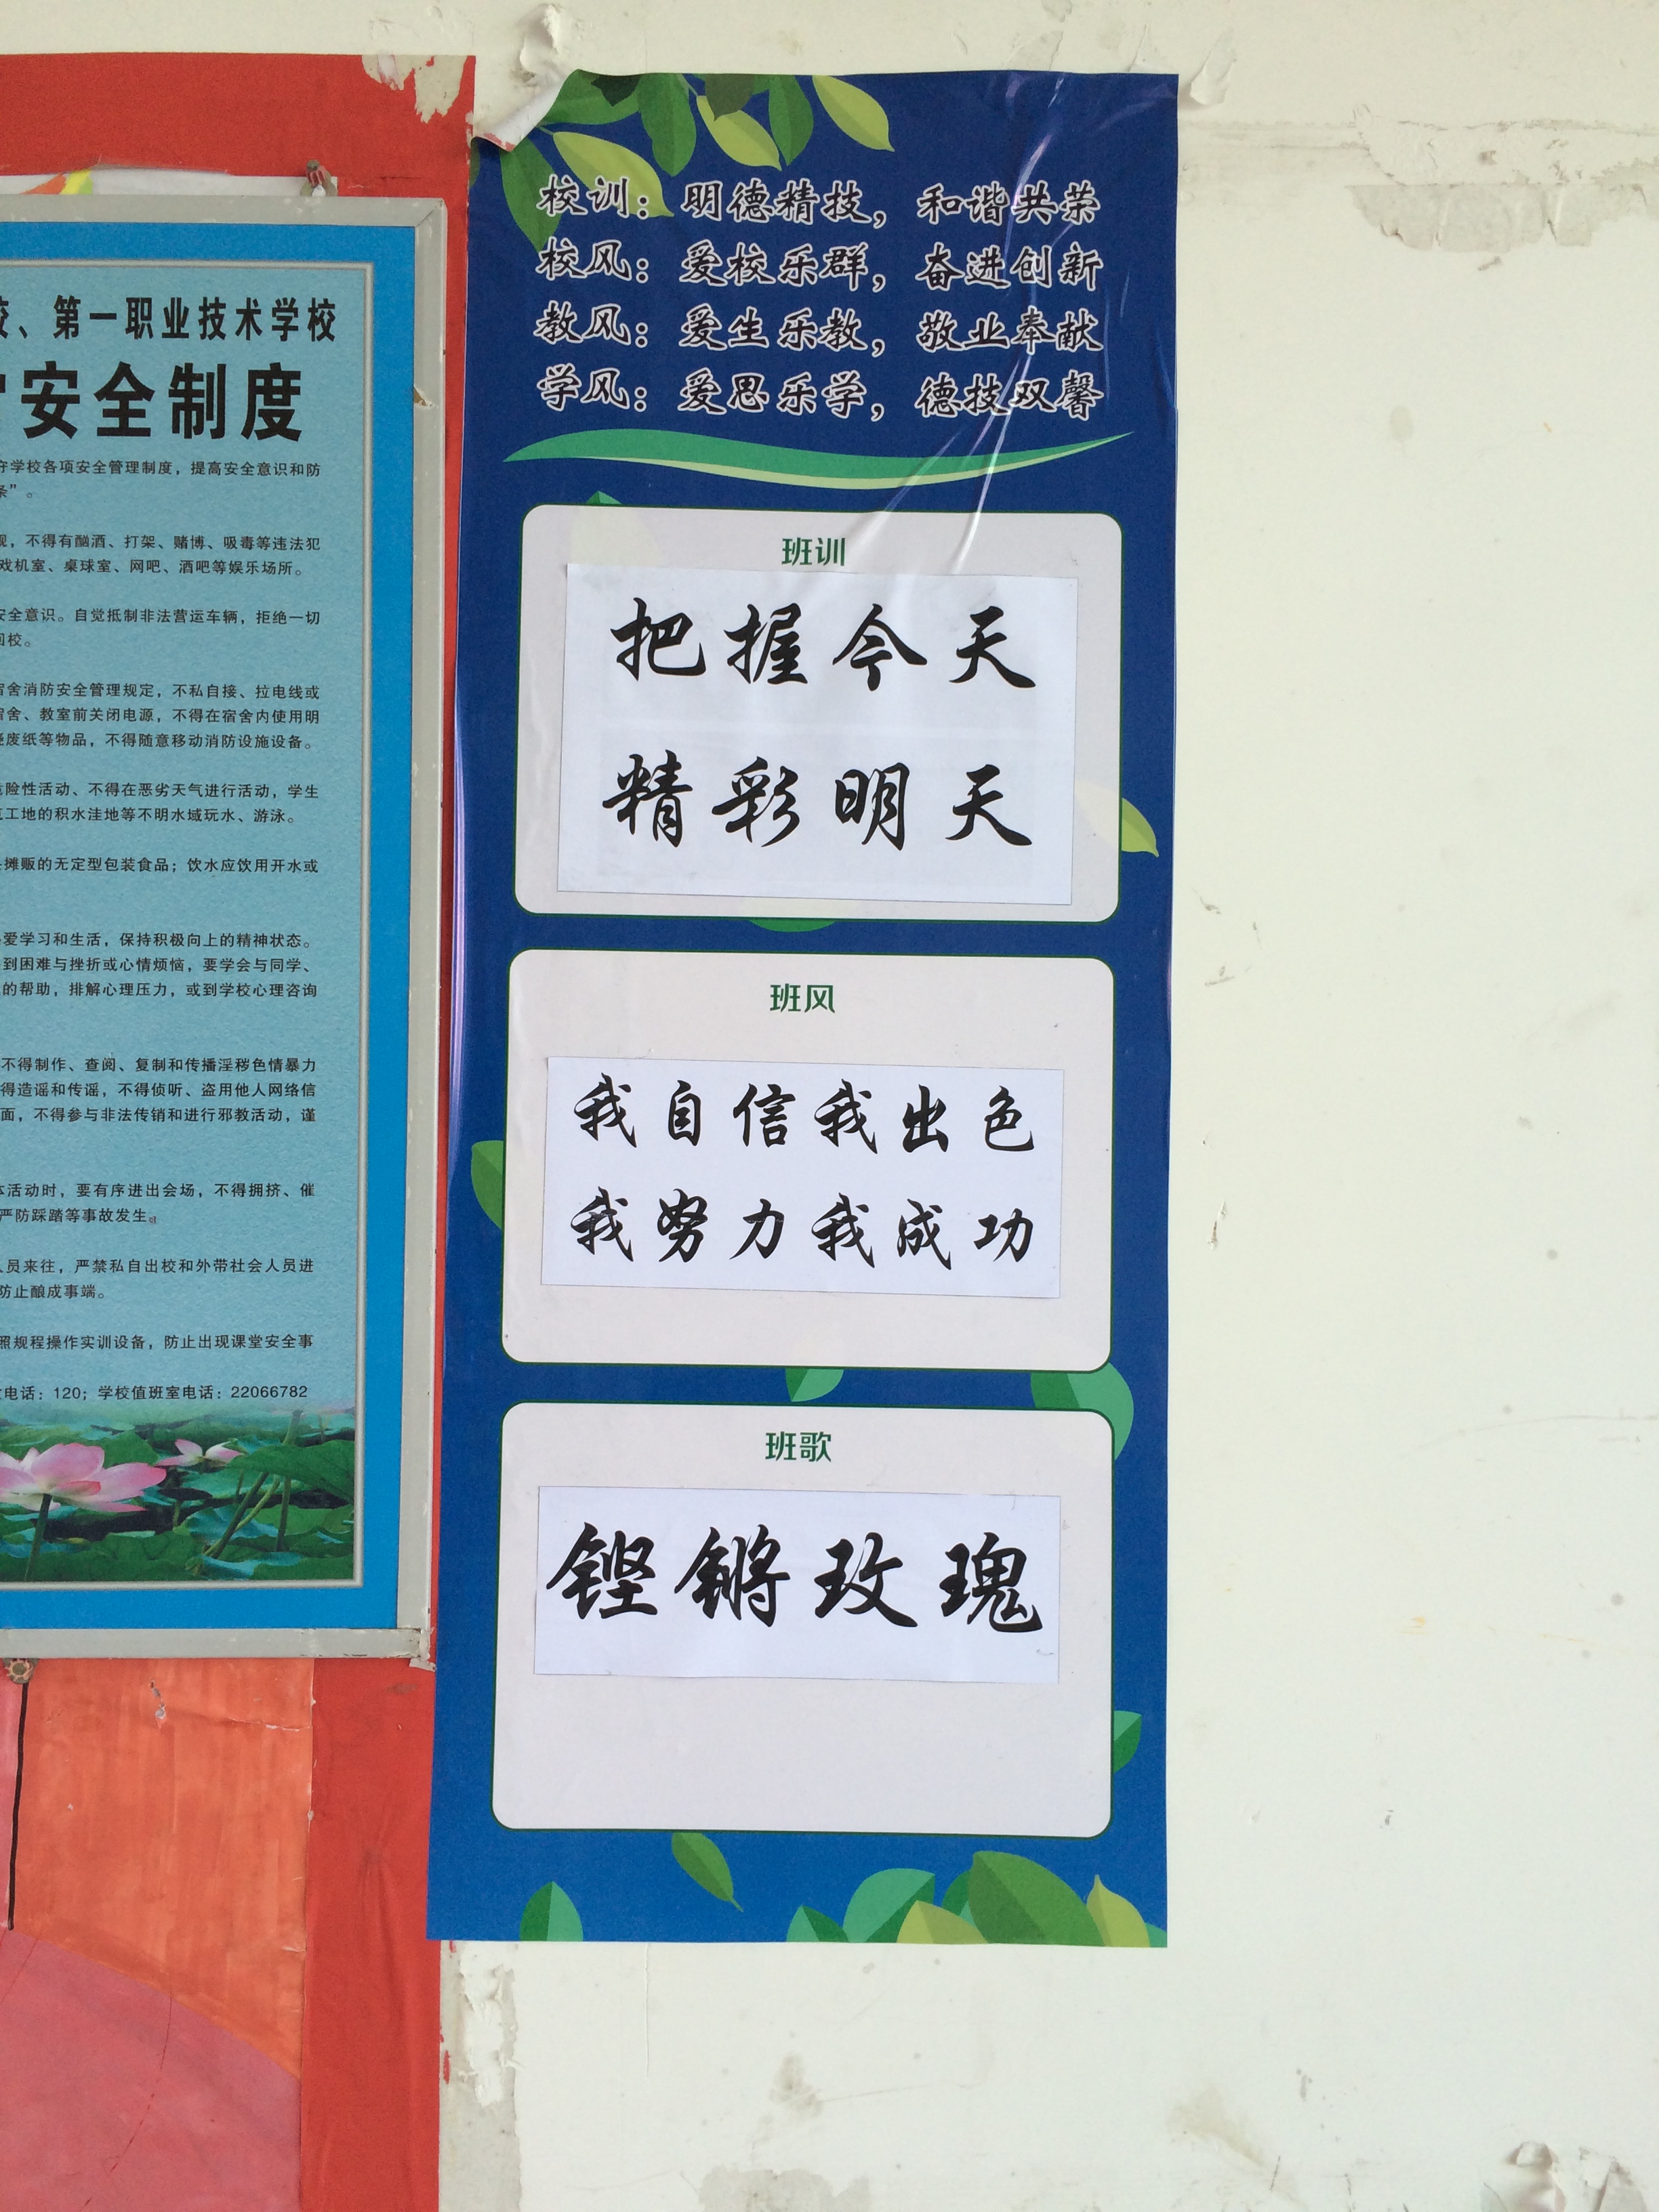 校、第一职业技术学校
安全制度
守学校各项安全管理制度，提高安全意识和防
条”。
规，不得有酗酒、打架、赌博、吸毒等违法犯
戏机室、桌球室、网吧、酒吧等娱乐场所。
安全意识。自觉抵制非法营运车辆，拒绝一切
回校。
宿舍消防安全管理规定，不私自接、拉电线或
宿舍、教室前关闭电源，不得在宿舍内使用明
烧废纸等物品，不得随意移动消防设施设备。
危险性活动、不得在恶劣天气进行活动，学生
工地的积水洼地等不明水域玩水、游泳。
摊贩的无定型包装食品；饮水应饮用开水或
爱学习和生活，保持积极向上的精神状态。
到困难与挫折或心情烦恼，要学会与同学、
的帮助，排解心理压力，或到学校心理咨询
不得制作、查阅、复制和传播淫秽色情暴力
得造谣和传谣，不得侦听、盗用他人网络信
面，不得参与非法传销和进行邪教活动，谨
体活动时，要有序进出会场，不得拥挤、催
严防踩踏等事故发生。
人员来往，严禁私自出校和外带社会人员进
防止酿成事端。
照规程操作实训设备，防止出现课堂安全事
电话：120；学校值班室电话：22066782
校训：明德精技，和谐共荣
校风：爱校乐群，奋进创新
教风：爱生乐教，敬业奉献
学风：爱思乐学，德技双馨
班训
把握今天
精彩明天
班风
我自信我出色
我努力我成功
班歌
铿锵玫瑰